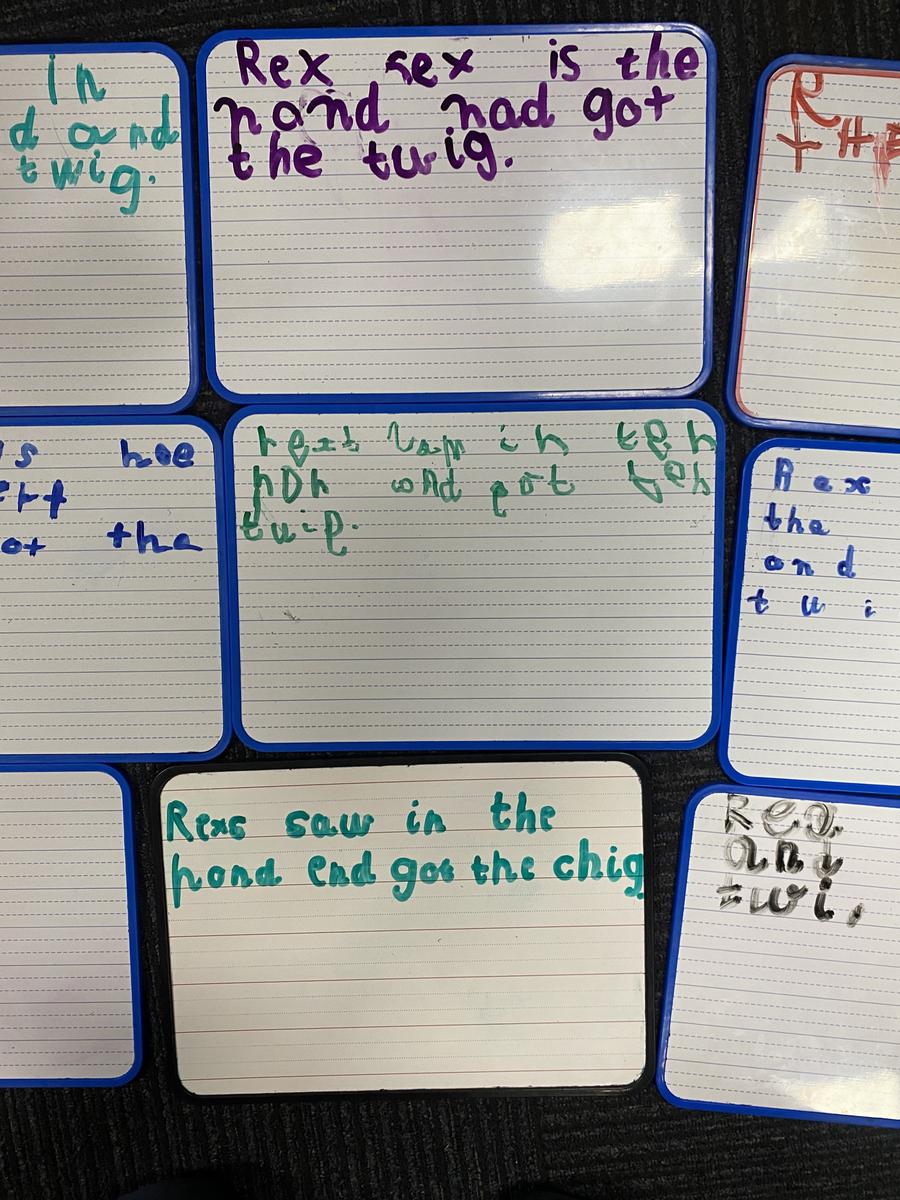 in
d and
twig.
Rex sex is the
pond nad got
the twig.
R
THE
s hoe
ot the
rext in teh
pon and got teh
twig.
Rex
the
and
twi
Rexs saw in the
pond end got the chig
Rex
any
twi.